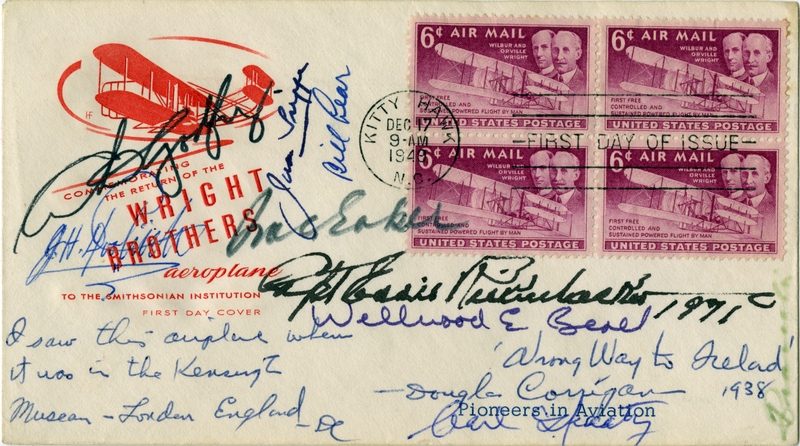 HF
COMMEMORATING
THE RETURN OF THE
WRIGHT
BROTHERS
aeroplane
TO THE SMITHSONIAN INSTITUTION
FIRST DAY COVER
6¢ AIR MAIL
WILBUR AND
ORVILLE
WRIGHT
FIRST FREE
CONTROLLED AND
SUSTAINED POWERED FLIGHT BY MAN
UNITED STATES POSTAGE
6¢ AIR MAIL
WILBUR AND
ORVILLE
WRIGHT
FIRST FREE
CONTROLLED AND
SUSTAINED POWERED FLIGHT BY MAN
UNITED STATES POSTAGE
KITTY HAWK
DEC 17
9-AM
1949
N.C.
FIRST DAY OF ISSUE
6¢ AIR MAIL
WILBUR AND
ORVILLE
WRIGHT
FIRST FREE
CONTROLLED AND
SUSTAINED POWERED FLIGHT BY MAN
UNITED STATES POSTAGE
6¢ AIR MAIL
WILBUR AND
ORVILLE
WRIGHT
FIRST FREE
CONTROLLED AND
SUSTAINED POWERED FLIGHT BY MAN
UNITED STATES POSTAGE
Bill Lear
Ira C Eaker
Capt Eddie Rickenbacker 1971
Wellwood E Beall
I saw this airplane when
it was in the Kensingt
Museum - London England - DC
'Wrong Way to Ireland'
- Douglas Corrigan 1938
Pioneers in Aviation
Carl Spaatz